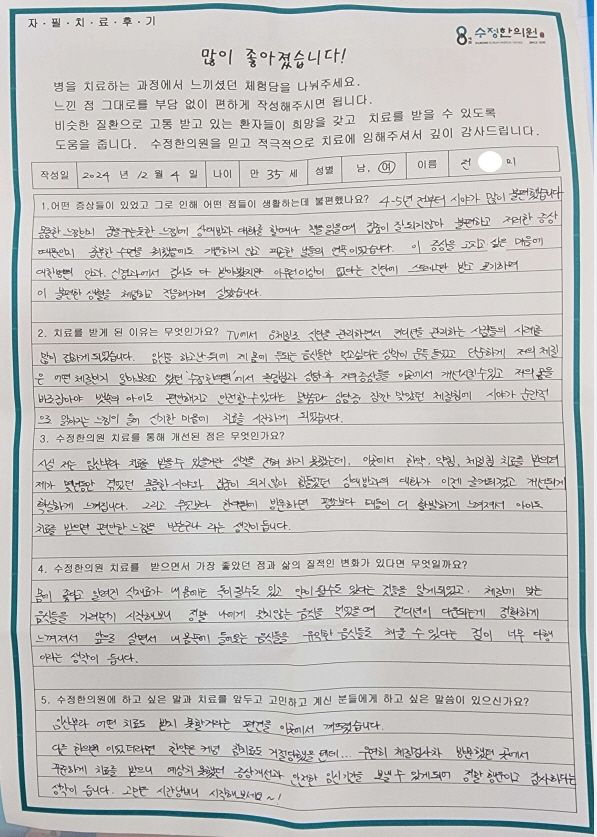 자·필·치·료·후·기
8 수정한의원
많이 좋아졌습니다!
병을 치료하는 과정에서 느끼셨던 체험담을 나눠주세요.
느낀 점 그대로를 부담 없이 편하게 작성해주시면 됩니다.
비슷한 질환으로 고통 받고 있는 환자들이 희망을 갖고 치료를 받을 수 있도록
도움을 줍니다. 수정한의원을 믿고 적극적으로 치료에 임해주셔서 깊이 감사드립니다.
작성일 2024 년 12 월 4 일 나이 만 35 세 성별 남, 여 이름 전 미
1.어떤 증상들이 있었고 그로 인해 어떤 점들이 생활하는데 불편했나요? 4-5년 전부터 시야가 많이 불편했습니다
몽롱한 느낌이고 꿈을 꾸는듯한 느낌에 상대방과 대화를 할때나 책을 읽을때 집중이 잘 되지않아 불편하고 저러한 증상
때문인지 충분한 수면을 취했음에도 개운하지 않고 피곤한 날들의 연속이었습니다. 이 증상을 고치고 싶은 마음에
대학병원 안과, 신경과에서 검사도 다 받아봤지만 아무런 이상이 없다는 진단에 스트레스만 받고 포기하며
이 불편한 생활을 체념하고 적응해가며 살았습니다.
2. 치료를 받게 된 이유는 무엇인가요? TV에서 음식으로 식단을 관리하면서 컨디션을 관리하는 사람들의 사례를
많이 접하게 되었습니다. 임신을 하고나니 제 몸에 맞는 음식들만 먹고싶다는 생각이 문득 들었고 단순하게 저의 체질
은 어떤 체질인지 알아보려고 왔던 '수정한의원'에서 원장님과 상담 후 저의 증상들을 이곳에서 개선시킬수있고 저의 몸을
바로잡아야 뱃속의 아이도 편안해지고 안전할수있다는 말씀과 상담중 잠깐 맞았던 체질침에 시야가 순간적
으로 맑아지는 느낌이 들어 신기한 마음에 치료를 시작하게 되었습니다.
3. 수정한의원 치료를 통해 개선된 점은 무엇인가요?
사실 저는 임산부라 치료를 받을수 있을거란 생각을 전혀 하지 못했는데, 이곳에서 한약, 약침, 체질침 치료를 받으며
제가 몇년동안 겪었던 몽롱한 시야와 집중이 되지 않아 힘들었던 상대방과의 대화가 이제 즐거워졌고 개선된게
확실하게 느껴집니다. 그리고 무엇보다 한의원에 방문하면 평소보다 태동이 더 활발하게 느껴져서 아이도
치료를 받으면 편안한 느낌을 받는구나 라는 생각이 듭니다.
4. 수정한의원 치료를 받으면서 가장 좋았던 점과 삶의 질적인 변화가 있다면 무엇일까요?
몸에 좋다고 알려진 식재료가 내 몸에는 독이 될수도 있고 약이 될수도 있다는 것들을 알게되었고, 체질에 맞는
음식들을 가려먹기 시작해보니 정말 나에게 맞지않는 음식을 먹었을때 컨디션이 다운되는게 정확하게
느껴져서 앞으로 살면서 내 몸속에 들어오는 음식들을 유익한 음식들로 채울 수 있다는 점이 너무 다행
이라는 생각이 듭니다.
5. 수정한의원에 하고 싶은 말과 치료를 앞두고 고민하고 계신 분들에게 하고 싶은 말씀이 있으신가요?
임산부라 어떤 치료도 받지 못할거라는 편견을 이곳에서 깨뜨렸습니다.
다른 한의원 이었더라면 한약은 커녕 침치료도 거절당했을텐데... 우연히 체질검사차 방문했던 곳에서
꾸준하게 치료를 받으니 예상치 못했던 증상개선과 안전한 임신기간을 보낼 수 있게되어 정말 행운이고 감사하다는
생각이 듭니다. 고민은 시간낭비니 시작해보세요~!